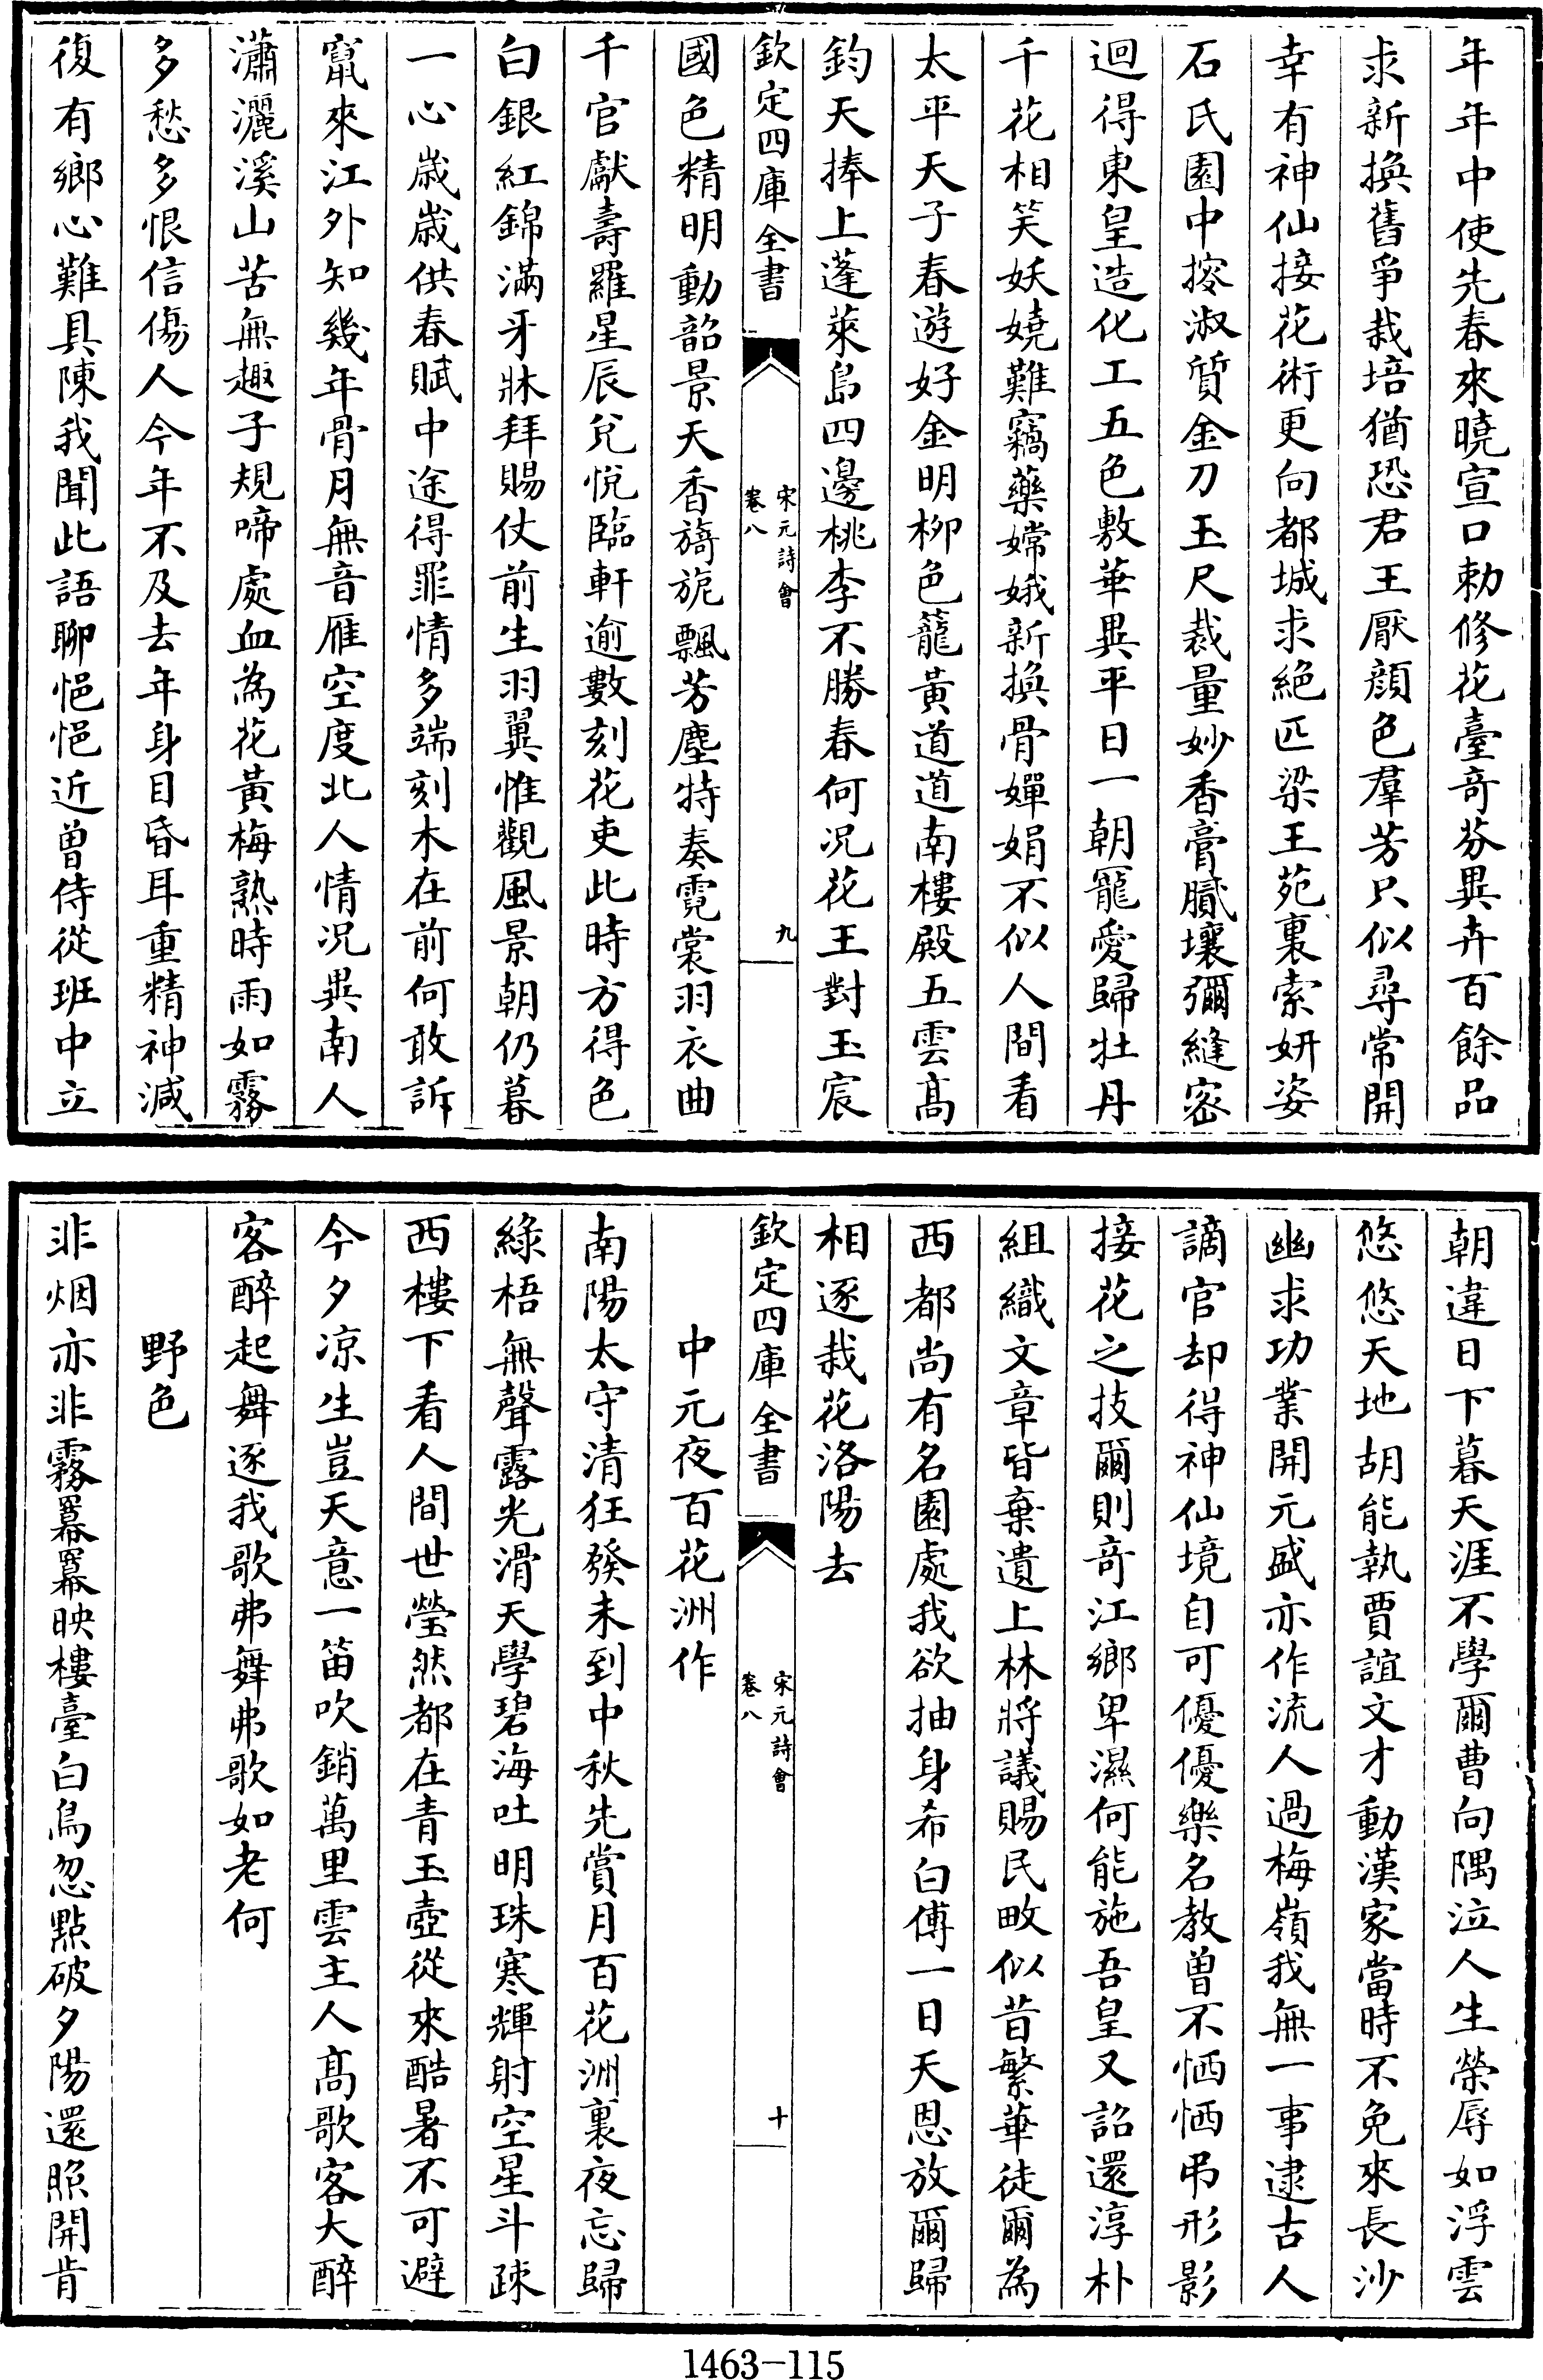 年年中使先春來曉宣口勅修花臺奇芬異卉百餘品
求新換舊爭栽培猶恐君王厭顔色羣芳只似尋常開
幸有神仙接花術更向都城求絶匹梁王苑裏索妍姿
石氏園中搲淑質金刀玉尺裁量妙香膏膩壤彌縫密
迴得東皇造化工五色敷華異平日一朝寵愛歸牡丹
千花相笑妖嬈難竊藥嫦娥新換骨嬋娟不似人間看
太平天子春遊好金明柳色籠黃道道南樓殿五雲髙
鈞天捧上蓬萊島四邊桃李不勝春何况花王對玉宸
欽定四庫全書
宋元詩會
卷八
九
國色精明動韶景天香旖旎飄芳塵特奏霓裳羽衣曲
千官獻壽羅星辰兊悅臨軒逾數刻花吏此時方得色
白銀紅錦滿牙牀拜賜仗前生羽翼惟觀風景朝仍暮
一心歲歲供春賦中途得罪情多端刻木在前何敢訴
竄來江外知幾年骨月無音雁空度北人情况異南人
瀟灑溪山苦無趣子規啼處血為花黃梅熟時雨如霧
多愁多恨信傷人今年不及去年身目昏耳重精神減
復有鄉心難具陳我聞此語聊悒悒近曾侍從班中立
朝違日下暮天涯不學爾曹向隅泣人生榮辱如浮雲
悠悠天地胡能執賈誼文才動漢家當時不免來長沙
幽求功業開元盛亦作流人過梅嶺我無一事逮古人
謫官却得神仙境自可優優樂名教曾不恓恓弔形影
接花之技爾則奇江鄉卑濕何能施吾皇又詔還淳朴
組織文章皆棄遺上林將議賜民畋似昔繁華徒爾為
西都尚有名園處我欲抽身希白傅一日天恩放爾歸
相逐栽花洛陽去
欽定四庫全書
宋元詩會
卷八
十
中元夜百花洲作
南陽太守清狂發未到中秋先賞月百花洲裏夜忘歸
綠梧無聲露光滑天學碧海吐明珠寒輝射空星斗疎
西樓下看人間世瑩然都在青玉壺從來酷暑不可避
今夕凉生豈天意一笛吹銷萬里雲主人髙歌客大醉
客醉起舞逐我歌弗舞弗歌如老何
野色
非烟亦非霧羃羃映樓臺白鳥忽點破夕陽還照開肯
1463-115